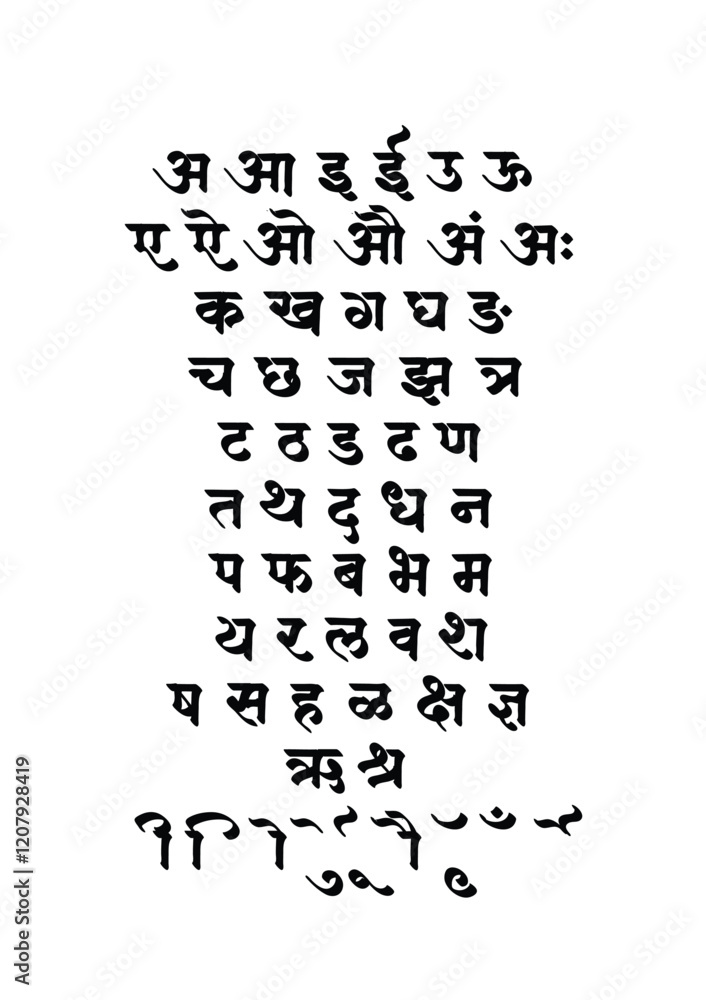 अ आ इ ई उ ऊ
ए ऐ ओ औ अं अः
क ख ग घ ङ
च छ ज झ त्र
ट ठ ड ढ ण
त थ द ध न
प फ ब भ म
य र ल व श
ष स ह ळ क्ष ज्ञ
ऋ श्र
Adobe Stock | #1207928419